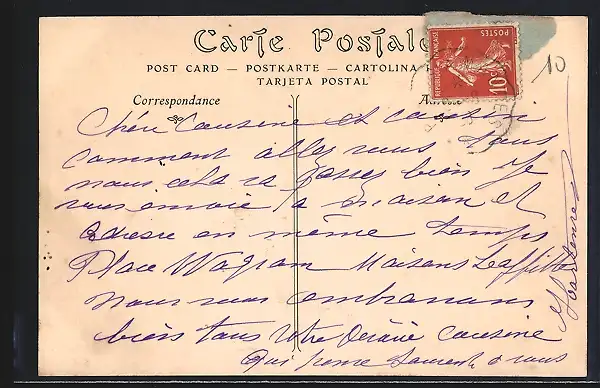 Carte Postale
POST CARD — POSTKARTE — CARTOLINA
TARJETA POSTAL
Correspondance
REPUBLIQUE FRANÇAISE
POSTES
10
10
Chéri Cousine et cousin
comment allez vous tous
nous cela va passez bien Je
vous envoie la maison et
adresse en même temps
Place Wagram Maisons Laffitte
nous vous embrassons
bien tous Votre cousine
Qui pense souvent a vous